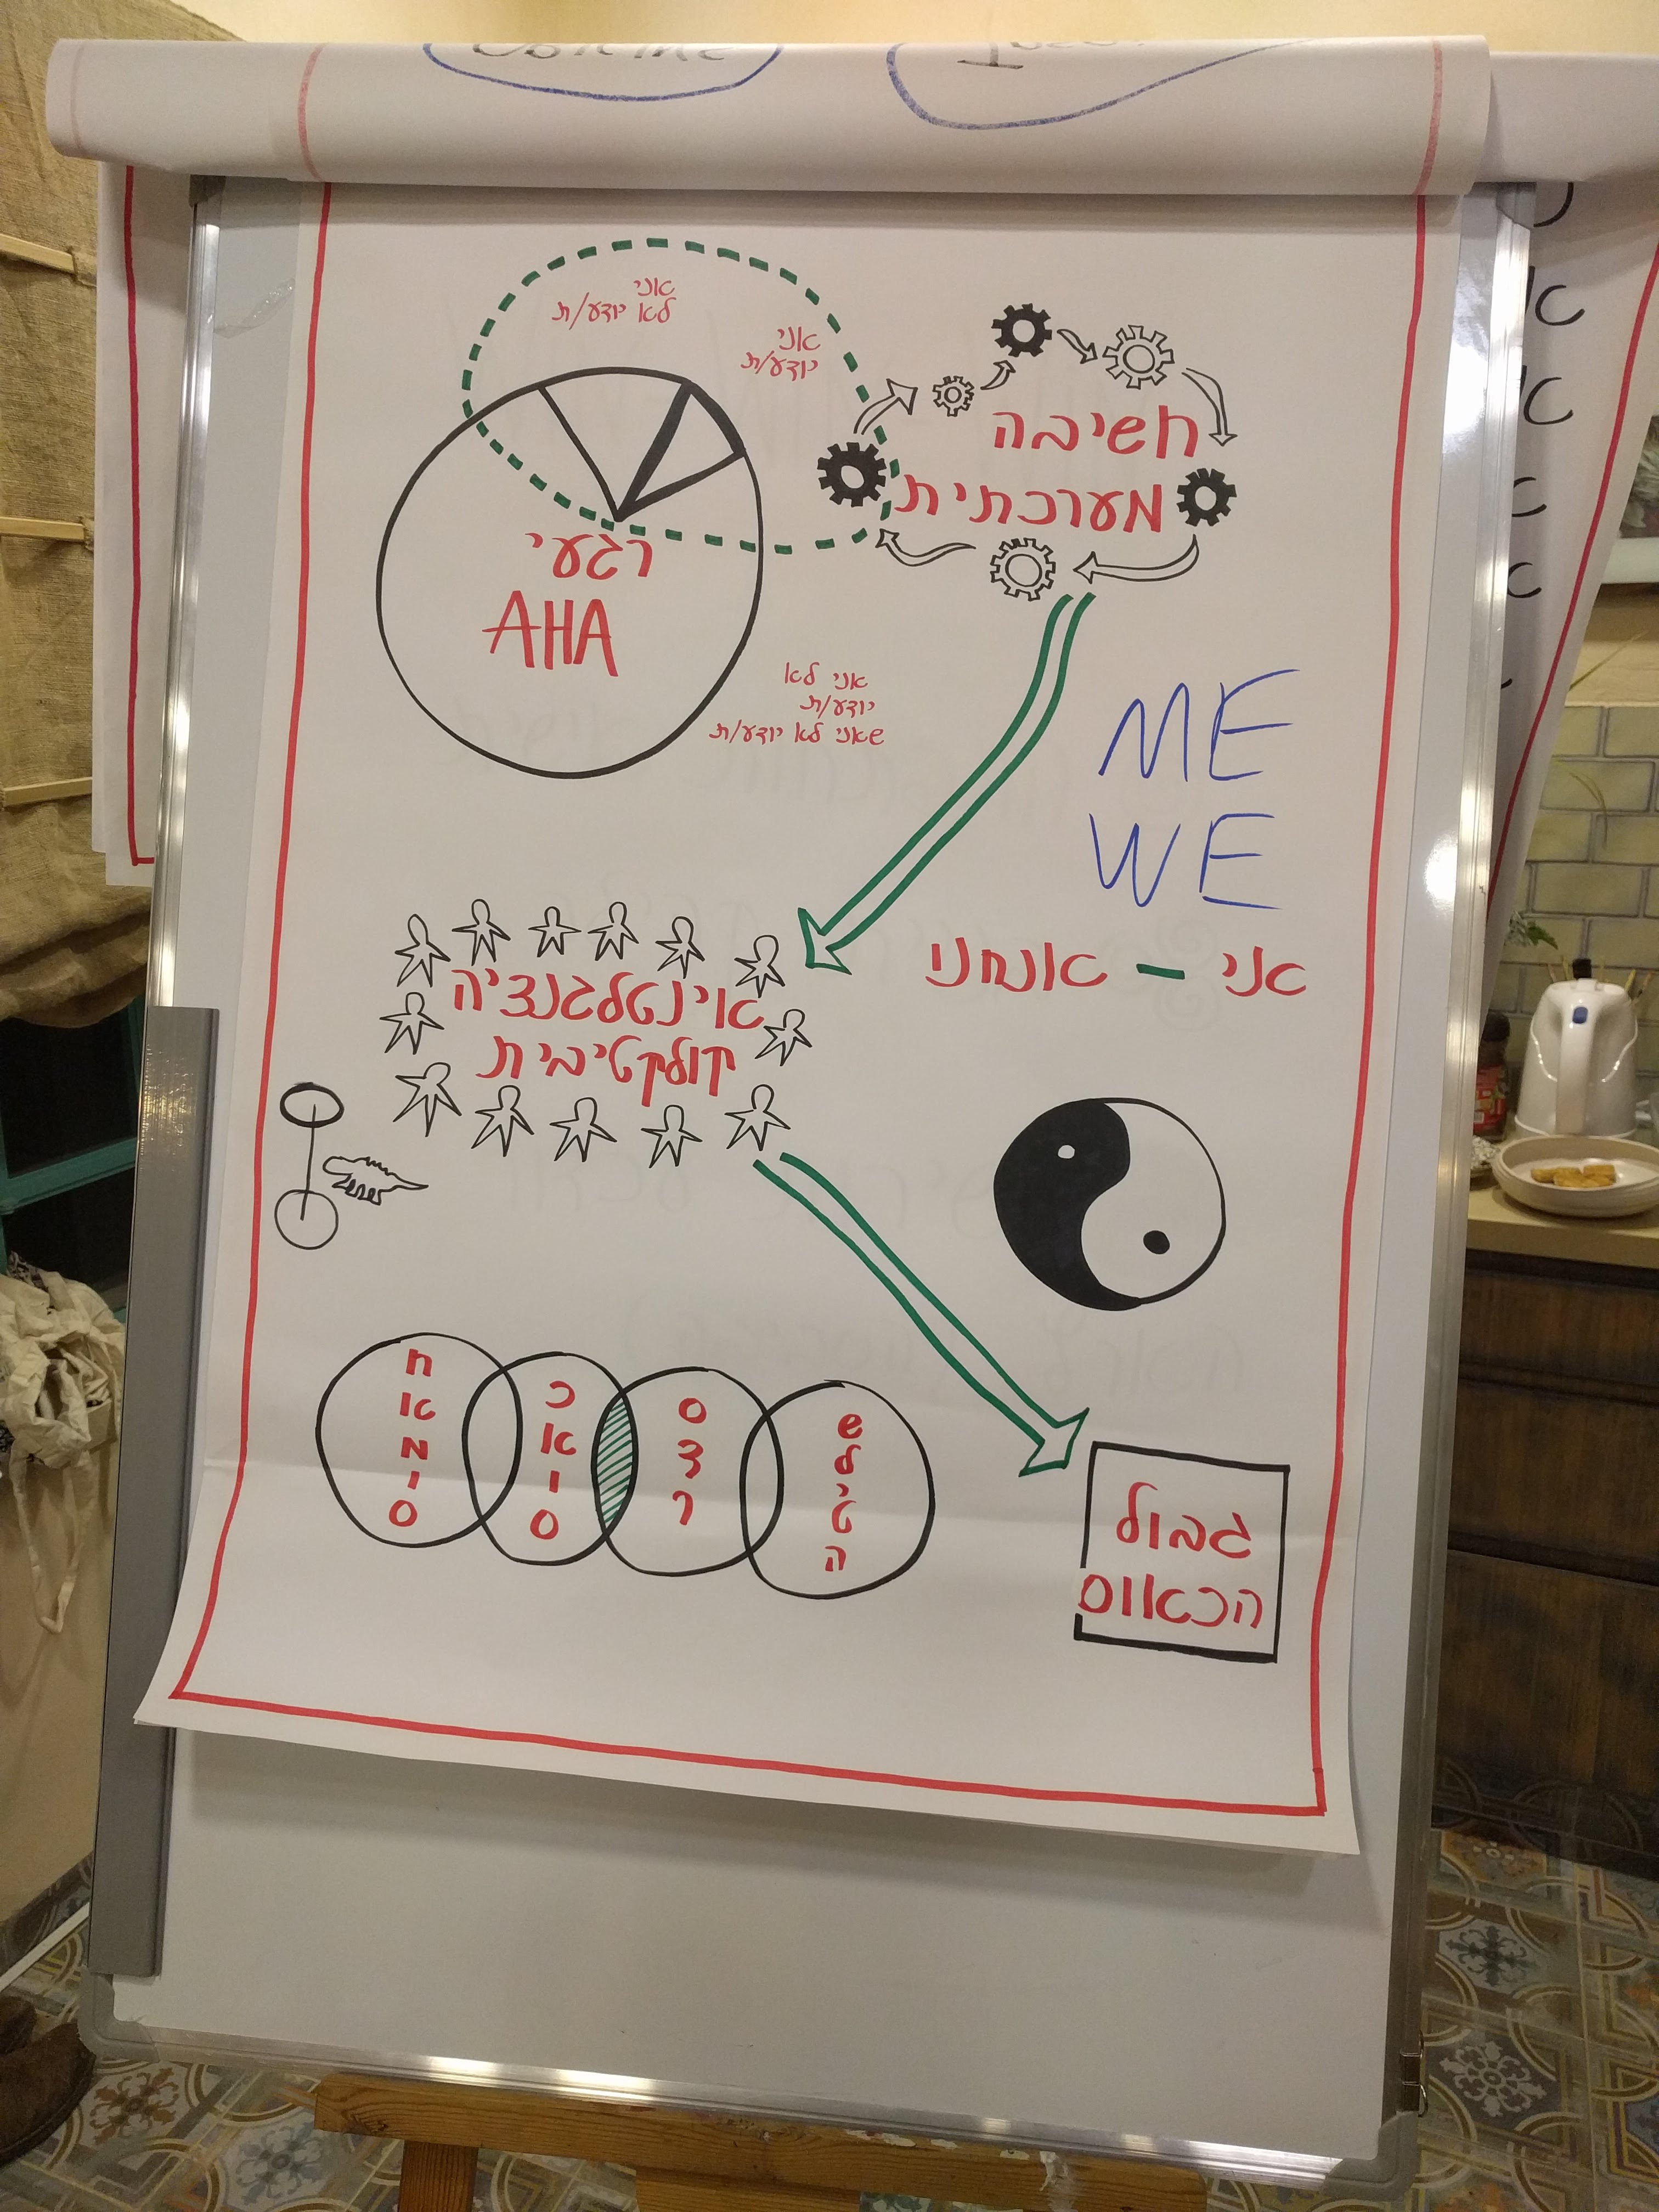 אני
לא יודע/ת
אני
יודע/ת
חשיבה
מערכתית
רגעי
AHA
אני לא
יודע/ת
שאני לא יודע/ת
ME
WE
אני – אנחנו
אינטלגנציה
קולקטיבית
חאמוס
כאוס
סדר
שליטה
גבול
הכאוס